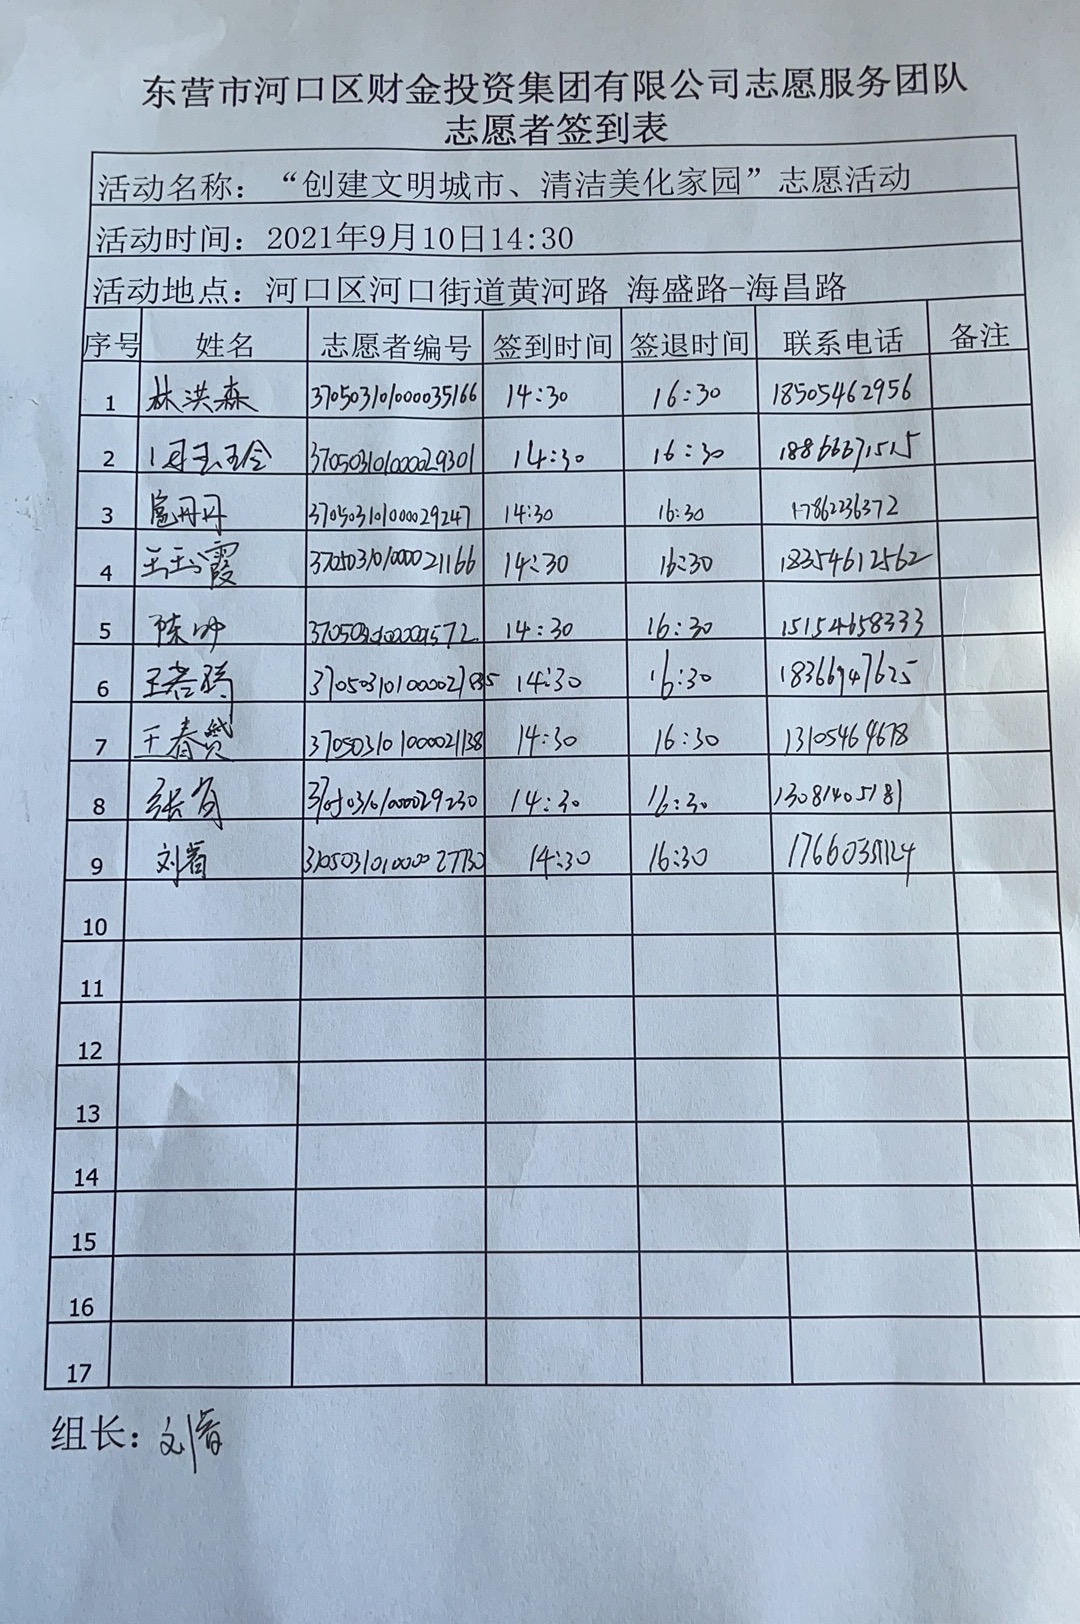 东营市河口区财金投资集团有限公司志愿服务团队
志愿者签到表
活动名称：“创建文明城市、清洁美化家园”志愿活动
活动时间：2021年9月10日14:30
活动地点：河口区河口街道黄河路 海盛路-海昌路
序号 姓名 志愿者编号 签到时间 签退时间 联系电话 备注
1 林洪森 3705031010000035166 14:30 16:30 18505462956
2 3705031010000029301 14:30 16:30 18866671515
3 扈丹丹 3705031010000029247 14:30 16:30 1786236372
4 王玉霞 3705031010000021166 14:30 16:30 18354612562
5 陈帅 14:30 16:30 15154658333
6 14:30 16:30 18366947625
7 王春贺 3705031010000021138 14:30 16:30 13105464678
8 14:30 16:30 13081405181
9 刘省 3705031010000027730 14:30 16:30
10
11
12
13
14
15
16
17
组长：刘省